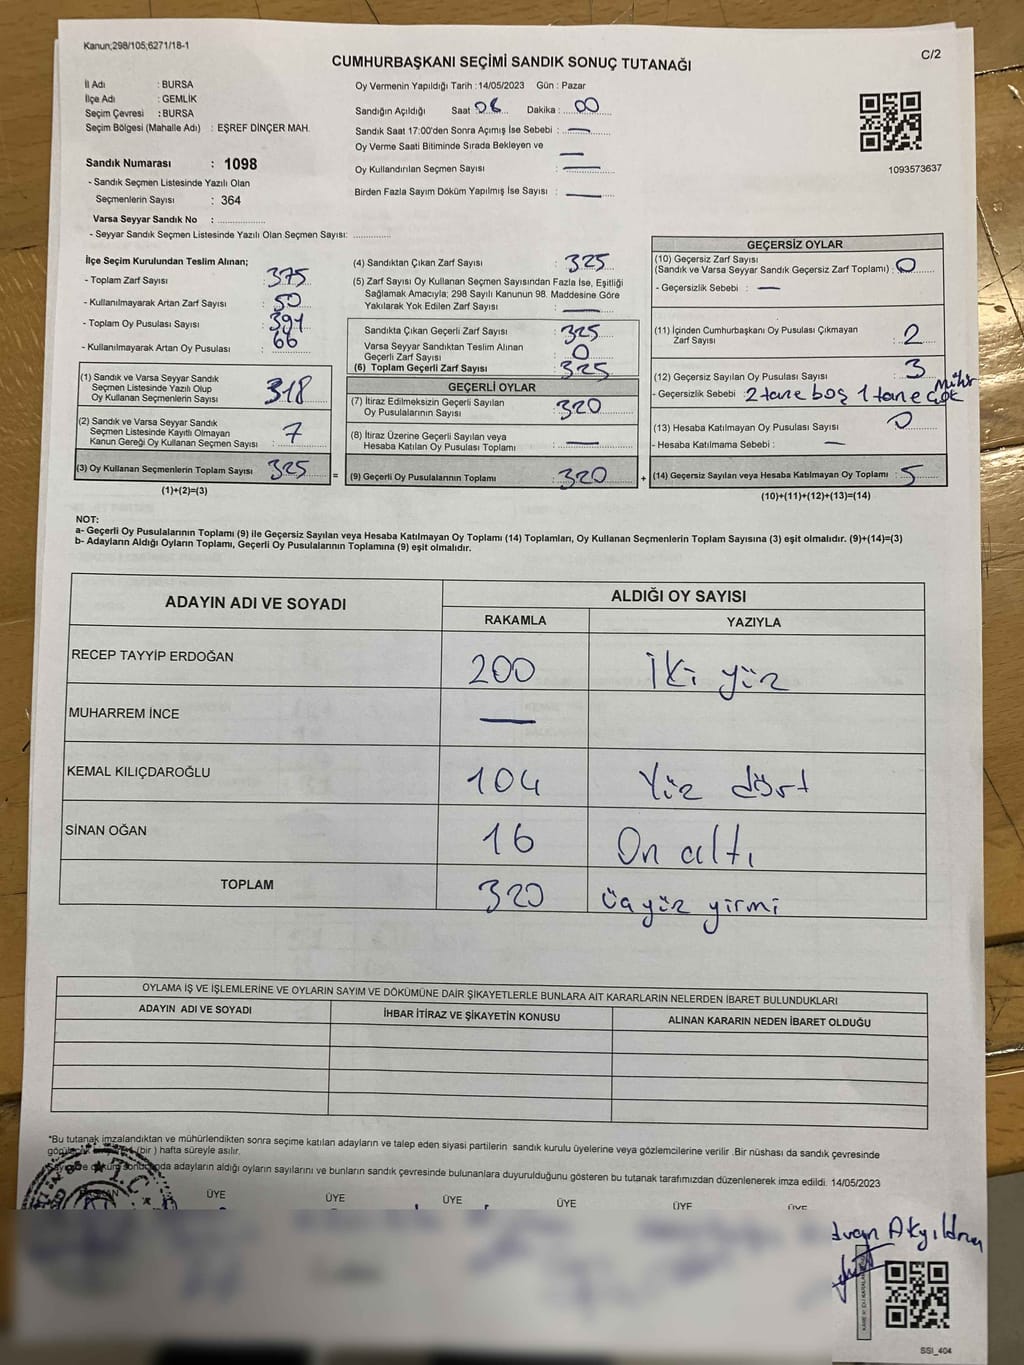 Kanun;298/105;6271/18-1
C/2
CUMHURBAŞKANI SEÇİMİ SANDIK SONUÇ TUTANAĞI
İl Adı : BURSA
İlçe Adı : GEMLİK
Seçim Çevresi : BURSA
Seçim Bölgesi (Mahalle Adı) : EŞREF DİNÇER MAH.
Sandık Numarası : 1098
- Sandık Seçmen Listesinde Yazılı Olan
Seçmenlerin Sayısı : 364
Varsa Seyyar Sandık No :
- Seyyar Sandık Seçmen Listesinde Yazılı Olan Seçmen Sayısı:
Oy Vermenin Yapıldığı Tarih : 14/05/2023 Gün : Pazar
Sandığın Açıldığı Saat 06 Dakika : 00
Sandık Saat 17:00'den Sonra Açımış İse Sebebi : —
Oy Verme Saati Bitiminde Sırada Bekleyen ve —
Oy Kullandırılan Seçmen Sayısı : —
Birden Fazla Sayım Döküm Yapılmış İse Sayısı : —
1093573637
İlçe Seçim Kurulundan Teslim Alınan;
- Toplam Zarf Sayısı : 375
- Kullanılmayarak Artan Zarf Sayısı : 50
- Toplam Oy Pusulası Sayısı : 391
- Kullanılmayarak Artan Oy Pusulası : 66
(1) Sandık ve Varsa Seyyar Sandık
Seçmen Listesinde Yazılı Olup
Oy Kullanan Seçmenlerin Sayısı : 318
(2) Sandık ve Varsa Seyyar Sandık
Seçmen Listesinde Kayıtlı Olmayan
Kanun Gereği Oy Kullanan Seçmen Sayısı : 7
(3) Oy Kullanan Seçmenlerin Toplam Sayısı 325
(1)+(2)=(3)
(4) Sandıktan Çıkan Zarf Sayısı : 325
(5) Zarf Sayısı Oy Kullanan Seçmen Sayısından Fazla İse, Eşitliği
Sağlamak Amacıyla; 298 Sayılı Kanunun 98. Maddesine Göre
Yakılarak Yok Edilen Zarf Sayısı : —
Sandıkta Çıkan Geçerli Zarf Sayısı : 325
Varsa Seyyar Sandıktan Teslim Alınan
Geçerli Zarf Sayısı : 0
(6) Toplam Geçerli Zarf Sayısı : 325
GEÇERLİ OYLAR
(7) İtiraz Edilmeksizin Geçerli Sayılan
Oy Pusulalarının Sayısı : 320
(8) İtiraz Üzerine Geçerli Sayılan veya
Hesaba Katılan Oy Pusulası Toplamı : —
= (9) Geçerli Oy Pusulalarının Toplamı : 320 +
GEÇERSİZ OYLAR
(10) Geçersiz Zarf Sayısı
(Sandık ve Varsa Seyyar Sandık Geçersiz Zarf Toplamı) : 0
- Geçersizlik Sebebi : —
(11) İçinden Cumhurbaşkanı Oy Pusulası Çıkmayan
Zarf Sayısı : 2
(12) Geçersiz Sayılan Oy Pusulası Sayısı : 3
- Geçersizlik Sebebi : 2 tane boş 1 tane çok Mühür
(13) Hesaba Katılmayan Oy Pusulası Sayısı : 0
- Hesaba Katılmama Sebebi : —
(14) Geçersiz Sayılan veya Hesaba Katılmayan Oy Toplamı : 5
(10)+(11)+(12)+(13)=(14)
NOT:
a- Geçerli Oy Pusulalarının Toplamı (9) ile Geçersiz Sayılan veya Hesaba Katılmayan Oy Toplamı (14) Toplamları, Oy Kullanan Seçmenlerin Toplam Sayısına (3) eşit olmalıdır. (9)+(14)=(3)
b- Adayların Aldığı Oyların Toplamı, Geçerli Oy Pusulalarının Toplamına (9) eşit olmalıdır.
ADAYIN ADI VE SOYADI ALDIĞI OY SAYISI
RAKAMLA YAZIYLA
RECEP TAYYİP ERDOĞAN 200 İki yüz
MUHARREM İNCE —
KEMAL KILIÇDAROĞLU 104 Yüz dört
SİNAN OĞAN 16 On altı
TOPLAM 320 üçyüz yirmi
OYLAMA İŞ VE İŞLEMLERİNE VE OYLARIN SAYIM VE DÖKÜMÜNE DAİR ŞİKAYETLERLE BUNLARA AİT KARARLARIN NELERDEN İBARET BULUNDUKLARI
ADAYIN ADI VE SOYADI İHBAR İTİRAZ VE ŞİKAYETİN KONUSU ALINAN KARARIN NEDEN İBARET OLDUĞU
*Bu tutanak imzalandıktan ve mühürlendikten sonra seçime katılan adayların ve talep eden siyasi partilerin sandık kurulu üyelerine veya gözlemcilerine verilir .Bir nüshası da sandık çevresinde
(bir ) hafta süreyle asılır.
adayların aldığı oyların sayılarını ve bunların sandık çevresinde bulunanlara duyurulduğunu gösteren bu tutanak tarafımızdan düzenlenerek imza edildi. 14/05/2023
T.C.
ÜYE ÜYE ÜYE ÜYE ÜYE ÜYE
Akyıldırım
SSI_404